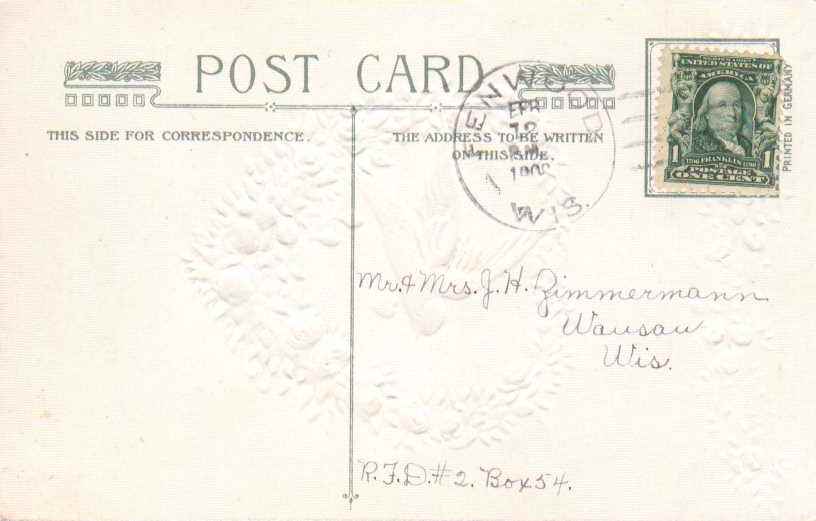 POST CARD
THIS SIDE FOR CORRESPONDENCE.
THE ADDRESS TO BE WRITTEN
ON THIS SIDE.
WIS.
UNITED STATES OF
AMERICA
1 FRANKLIN 1
POSTAGE
ONE CENT
PRINTED IN GERMANY
Mr. & Mrs. J. H. Zimmermann
Wausau
Wis.
R.F.D.# 2. Box 54.